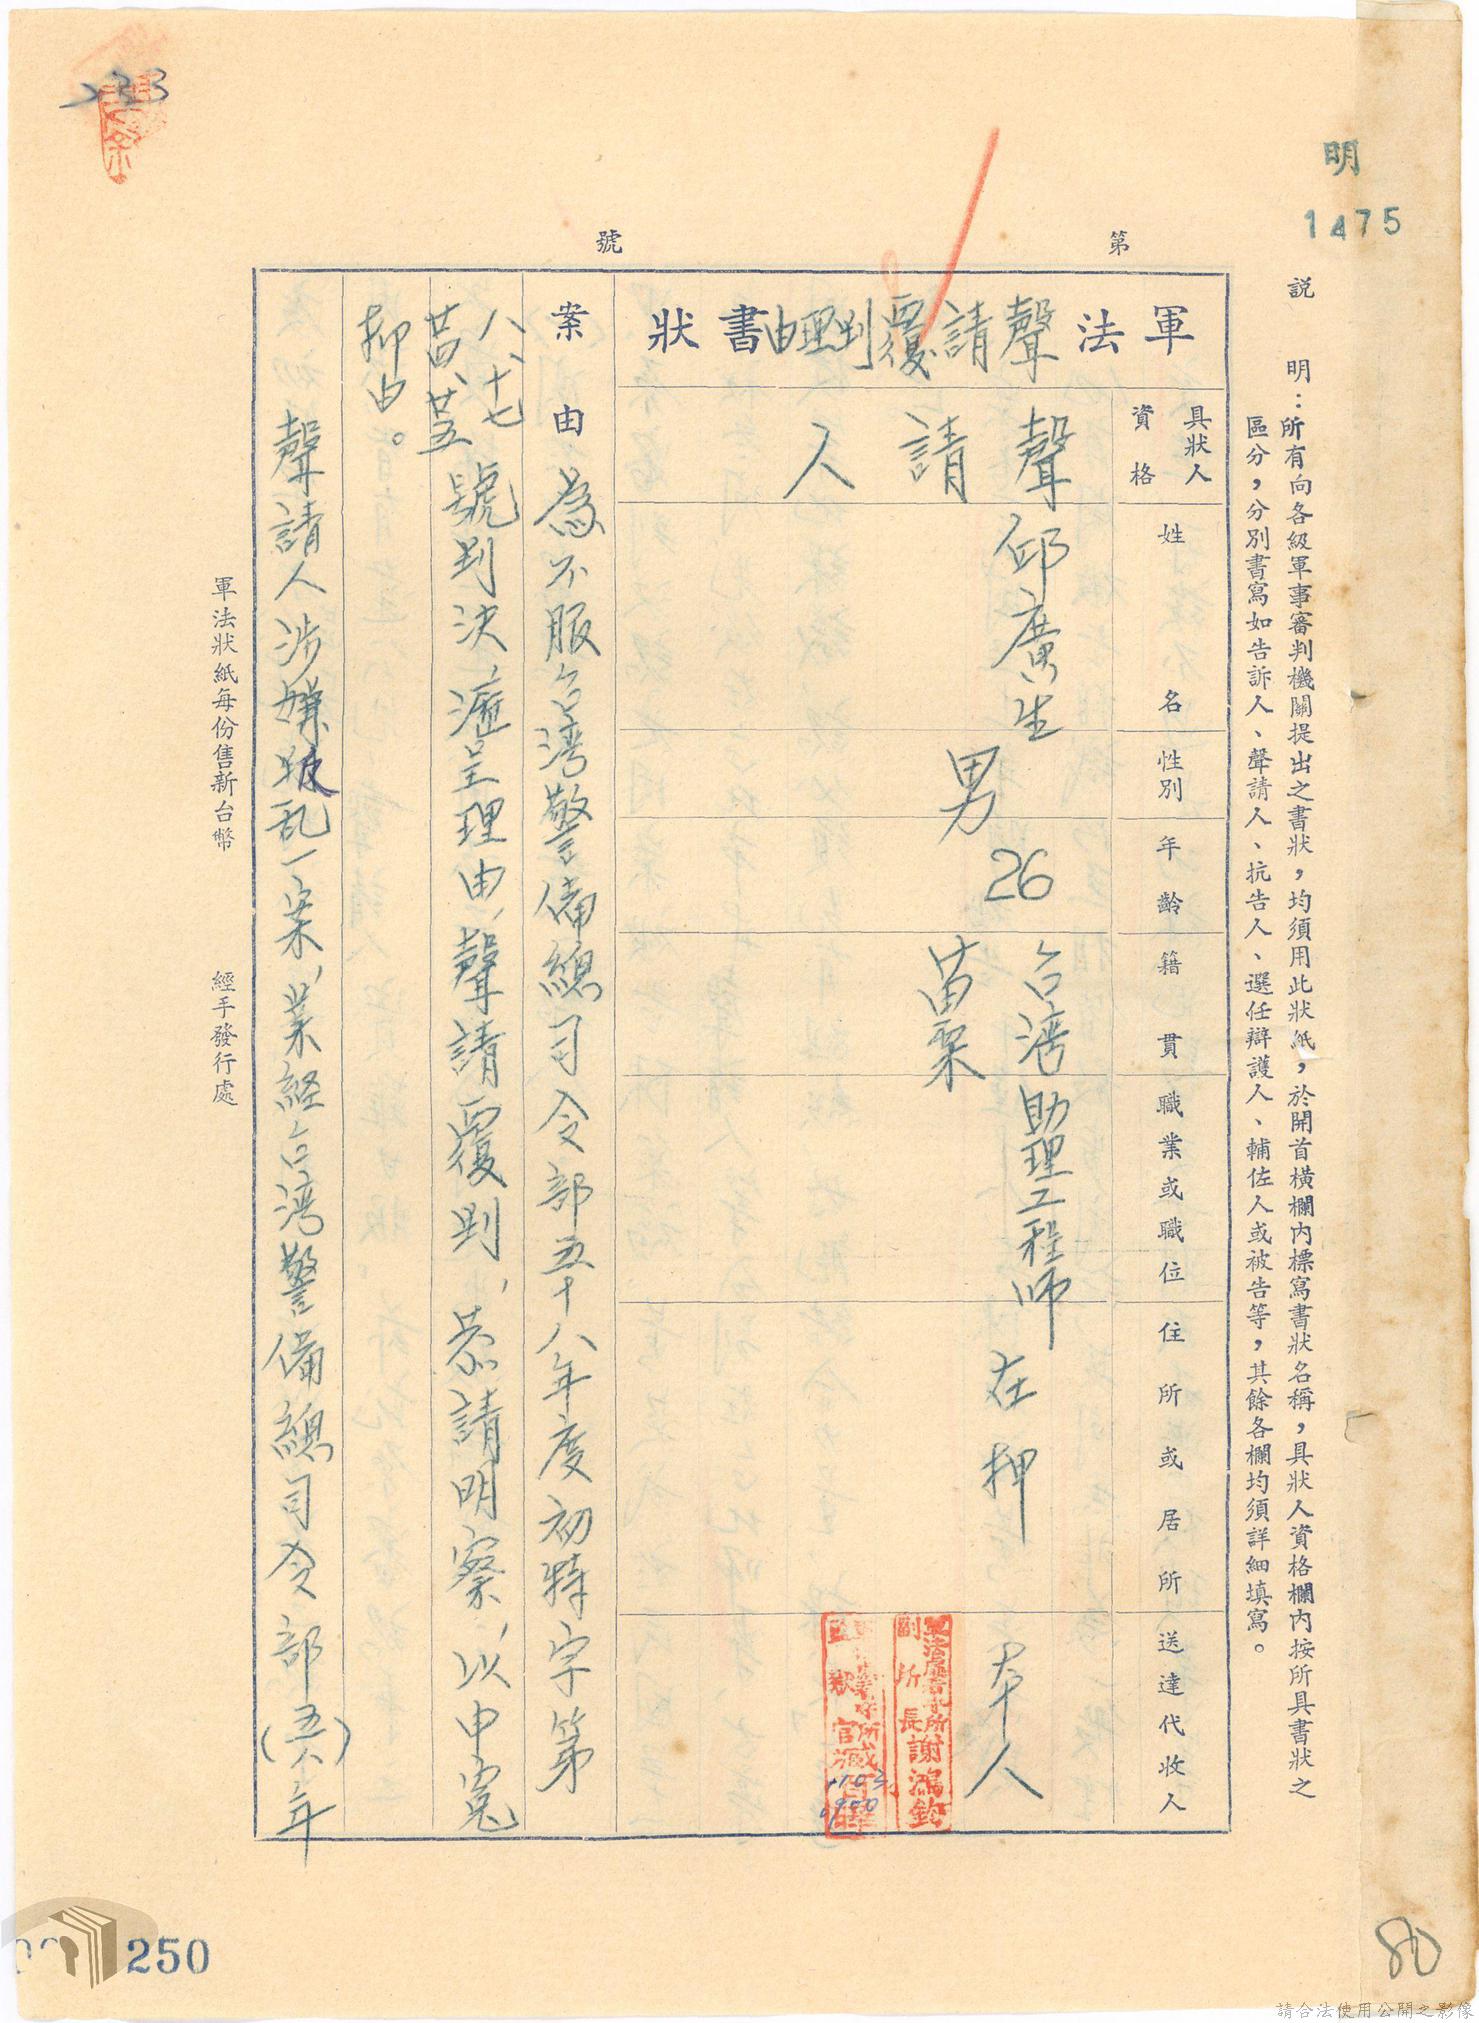 明
1475
233
第 號
說 明：所有向各級軍事審判機關提出之書狀，均須用此狀紙，於開首橫欄內標寫書狀名稱，具狀人資格欄內按所具書狀之
區分，分別書寫如告訴人、聲請人、抗告人、選任辯護人、輔佐人或被告等，其餘各欄均須詳細填寫。
軍法聲請覆判理由書狀
具狀人
資格
聲請人
姓名
邱廣生
性別
男
年齡
26
籍貫
台湾
苗栗
職業或職位
助理工程师
住所或居所
在押
送達代收人
本人
副所長謝鴻鈞
案由
為不服台湾警備總司令部五十八年度初特字第
八、十七
廿四、廿五號判決，瀝呈理由，聲請覆判，恭請明察，以申寃
抑由。
聲請人涉嫌叛乱一案，業経台湾警備總司令部(五八)年
軍法狀紙每份售新台幣 經手發行處
250
80
請合法使用公開之影像